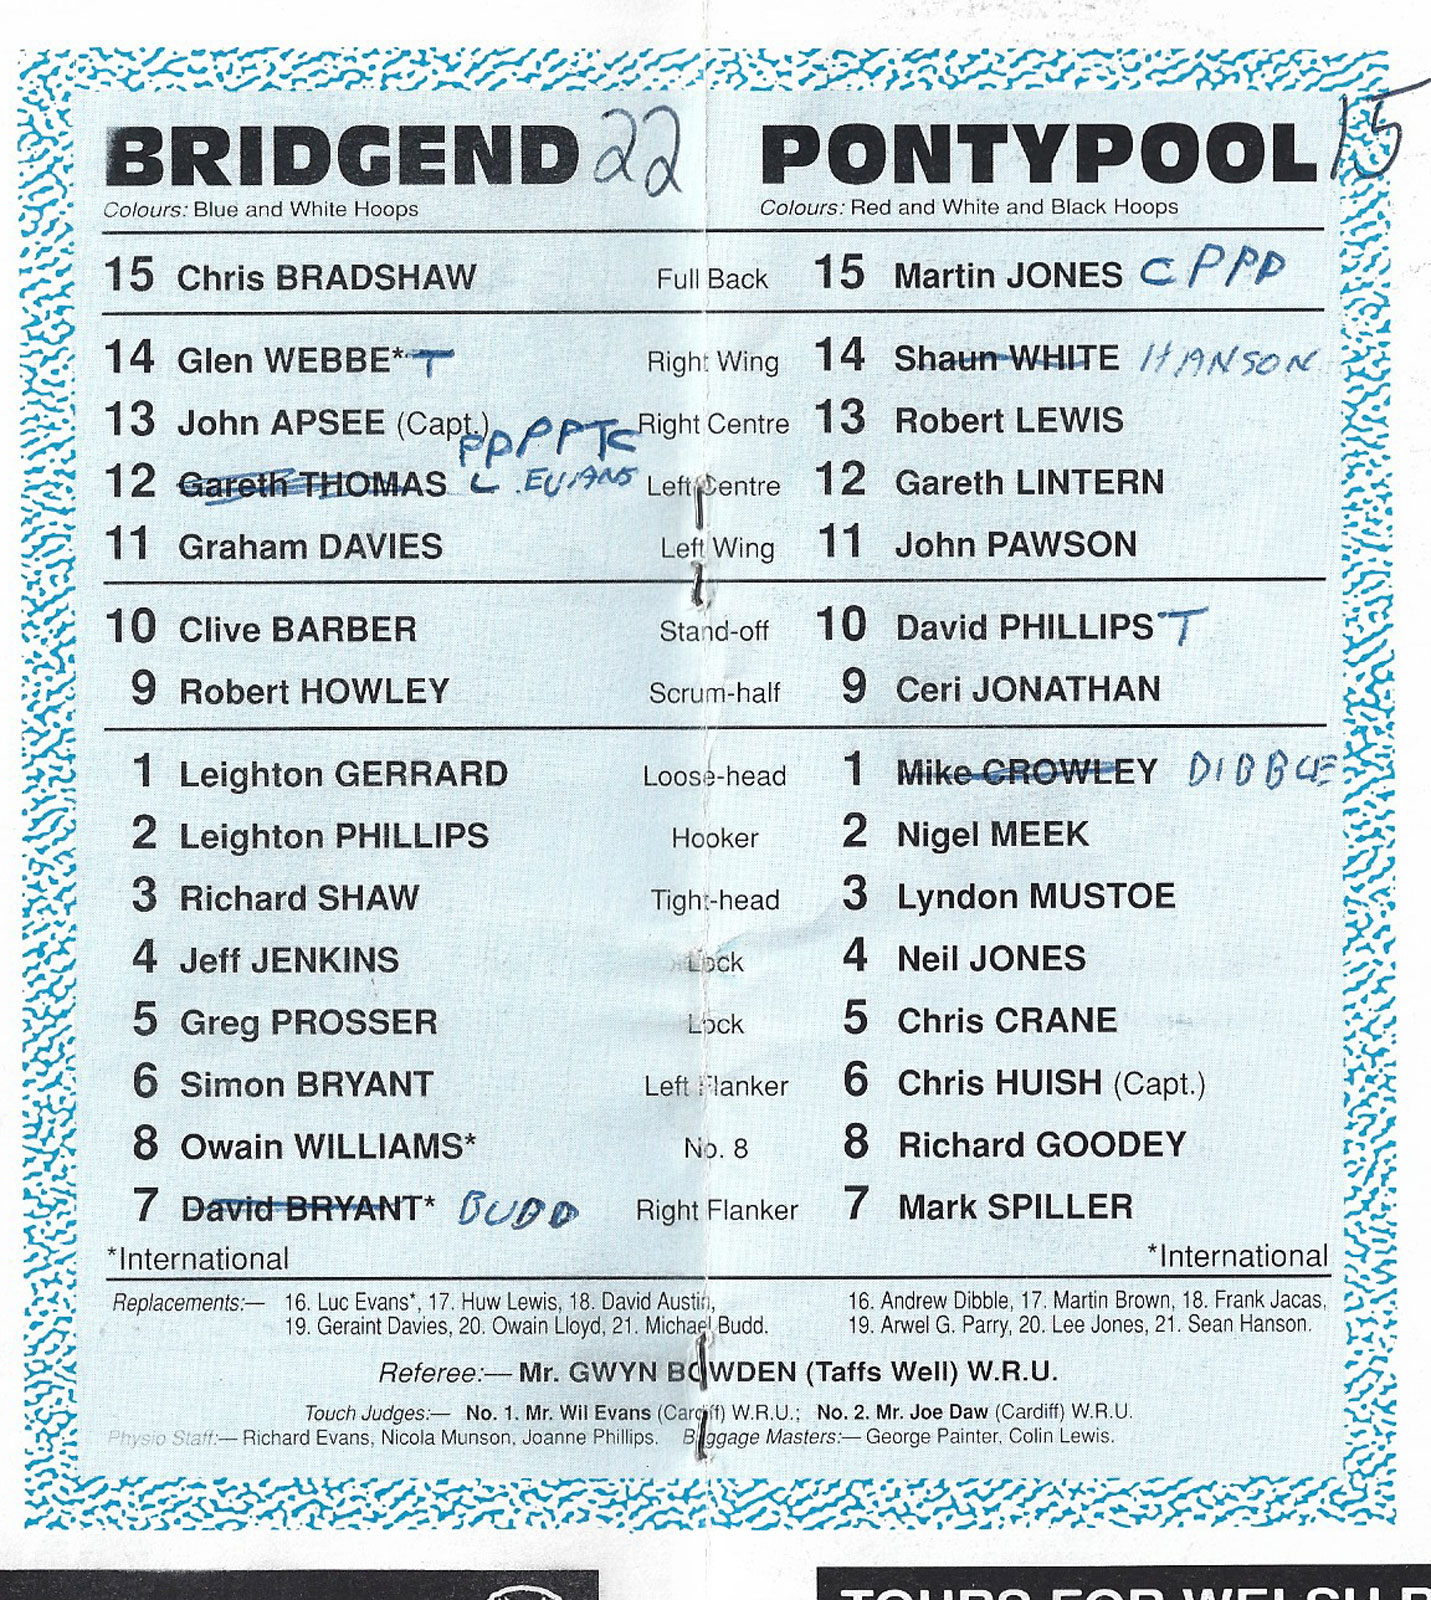 BRIDGEND 22 PONTYPOOL 15
Colours: Blue and White Hoops Colours: Red and White and Black Hoops
15 Chris BRADSHAW Full Back 15 Martin JONES C P P P
14 Glen WEBBE* T Right Wing 14 Shaun WHITE HANSON
13 John APSEE (Capt.) PPPPTC Right Centre 13 Robert LEWIS
12 Gareth THOMAS L. EVANS Left Centre 12 Gareth LINTERN
11 Graham DAVIES Left Wing 11 John PAWSON
10 Clive BARBER Stand-off 10 David PHILLIPS T
9 Robert HOWLEY Scrum-half 9 Ceri JONATHAN
1 Leighton GERRARD Loose-head 1 Mike CROWLEY DIBBLE
2 Leighton PHILLIPS Hooker 2 Nigel MEEK
3 Richard SHAW Tight-head 3 Lyndon MUSTOE
4 Jeff JENKINS Lock 4 Neil JONES
5 Greg PROSSER Lock 5 Chris CRANE
6 Simon BRYANT Left Flanker 6 Chris HUISH (Capt.)
8 Owain WILLIAMS* No. 8 8 Richard GOODEY
7 David BRYANT* BUDD Right Flanker 7 Mark SPILLER
*International *International
Replacements:— 16. Luc Evans*, 17. Huw Lewis, 18. David Austin, 16. Andrew Dibble, 17. Martin Brown, 18. Frank Jacas,
19. Geraint Davies, 20. Owain Lloyd, 21. Michael Budd. 19. Arwel G. Parry, 20. Lee Jones, 21. Sean Hanson.
Referee:— Mr. GWYN BOWDEN (Taffs Well) W.R.U.
Touch Judges:— No. 1. Mr. Wil Evans (Cardiff) W.R.U.; No. 2. Mr. Joe Daw (Cardiff) W.R.U.
Physio Staff:— Richard Evans, Nicola Munson, Joanne Phillips. Baggage Masters:— George Painter, Colin Lewis.
TOURS FOR WELSH